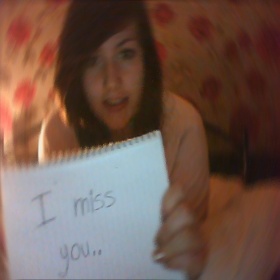 I miss
you..